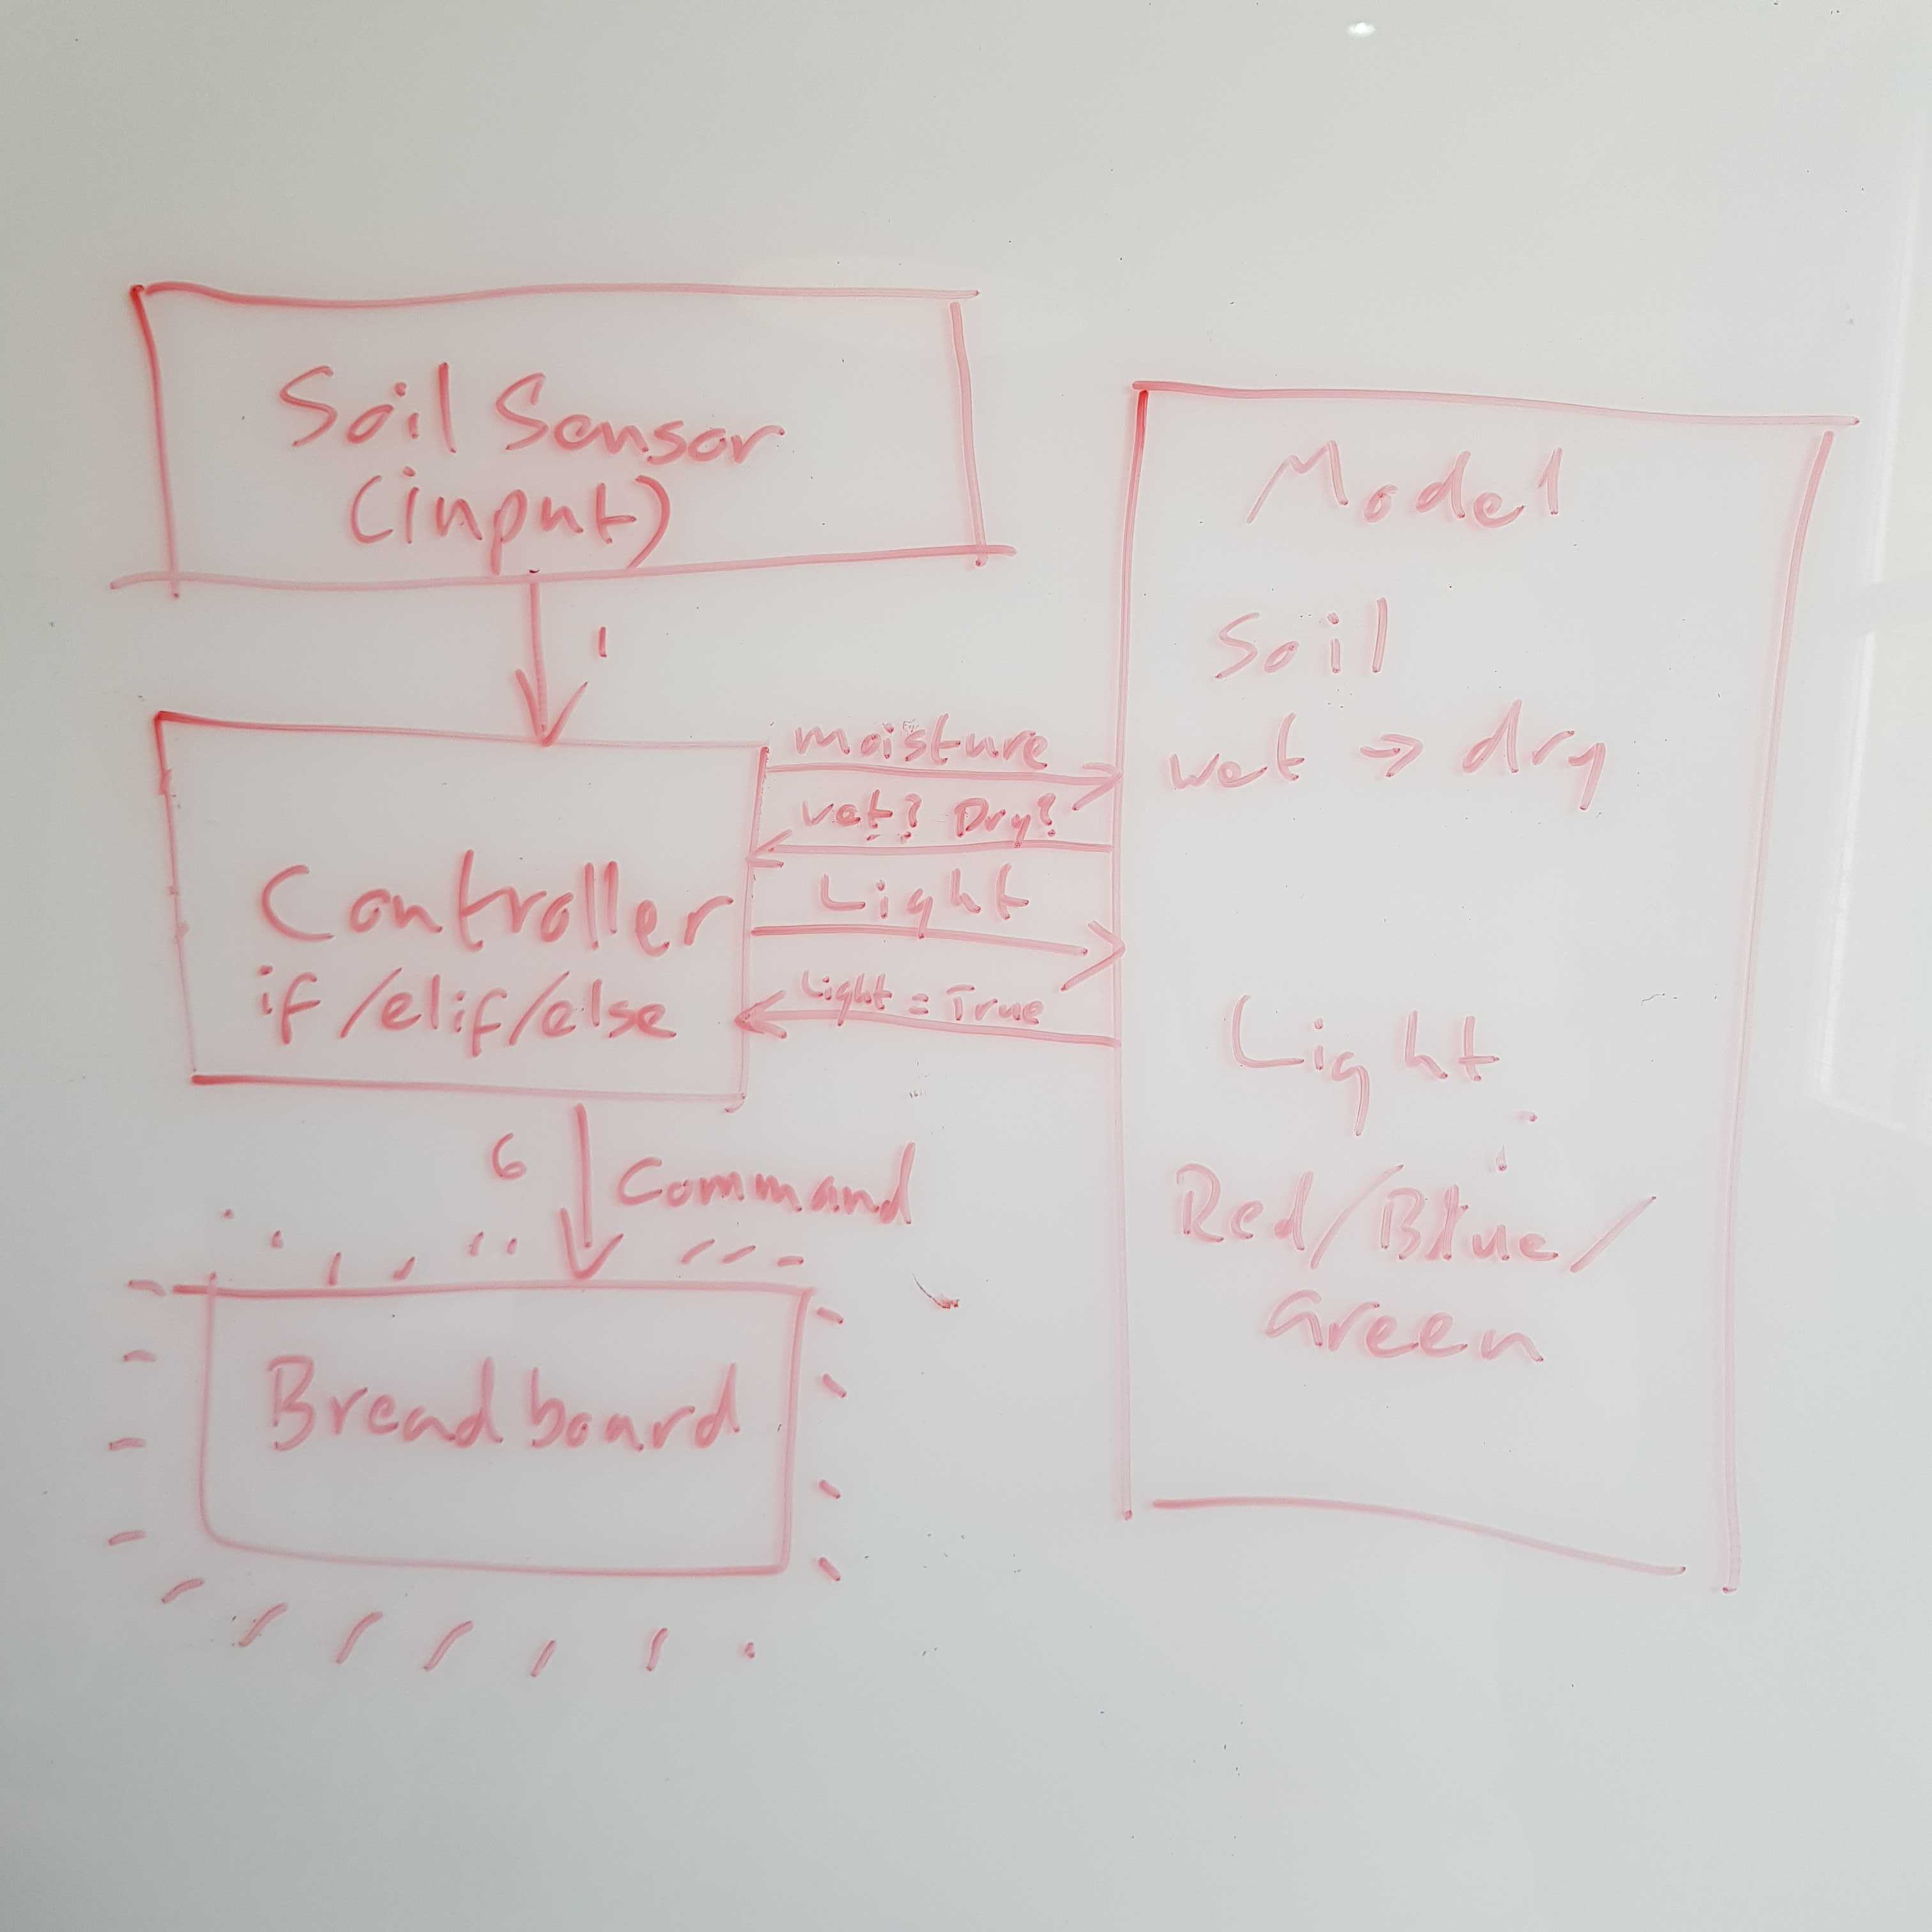 Soil Sensor
(input)
1
Controller
if /elif/else
moisture
wet? Dry?
Light
Light = True
6
Command
Breadboard
Model
Soil
wet → dry
Light
Red/Blue/
Green